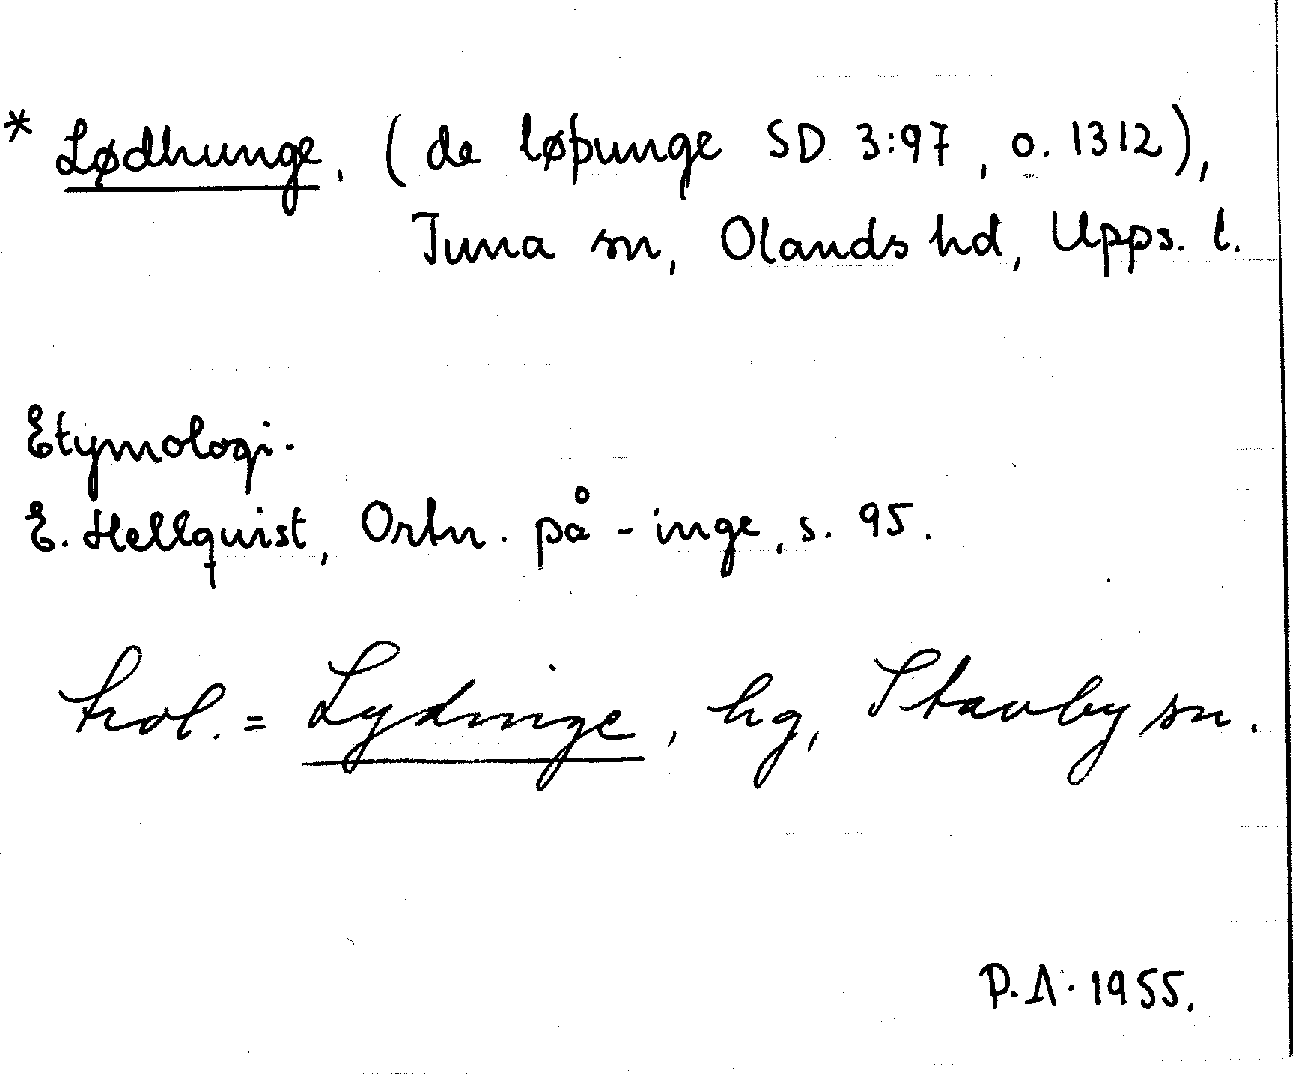 * Lødhunge. (de løþunge SD 3:97, o. 1312),
Tuna sn, Olands hd, Upps. l.
Etymologi.
E. Hellquist, Ortn. på -inge, s. 95.
trol. = Lydinge, hg, Stavby sn.
P.A. 1955.